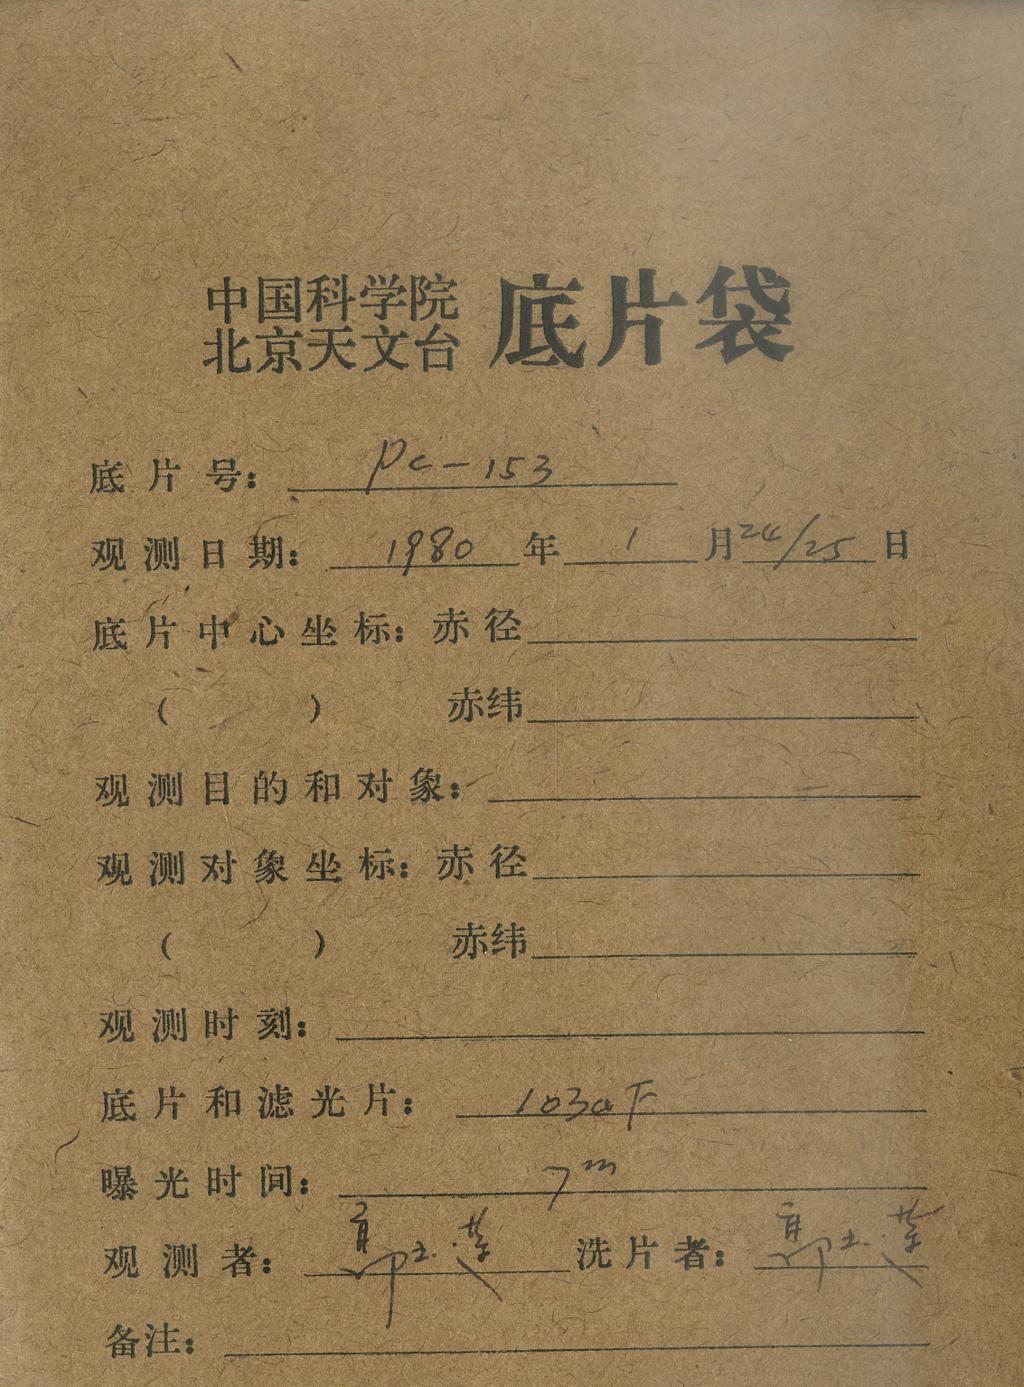 中国科学院
北京天文台 底片袋
底片号: pc-153
观测日期: 1980年1月24/25日
底片中心坐标: 赤径
( ) 赤纬
观测目的和对象:
观测对象坐标: 赤径
( ) 赤纬
观测时刻:
底片和滤光片: 103aF
曝光时间: 7m
观测者: 洗片者:
备注: